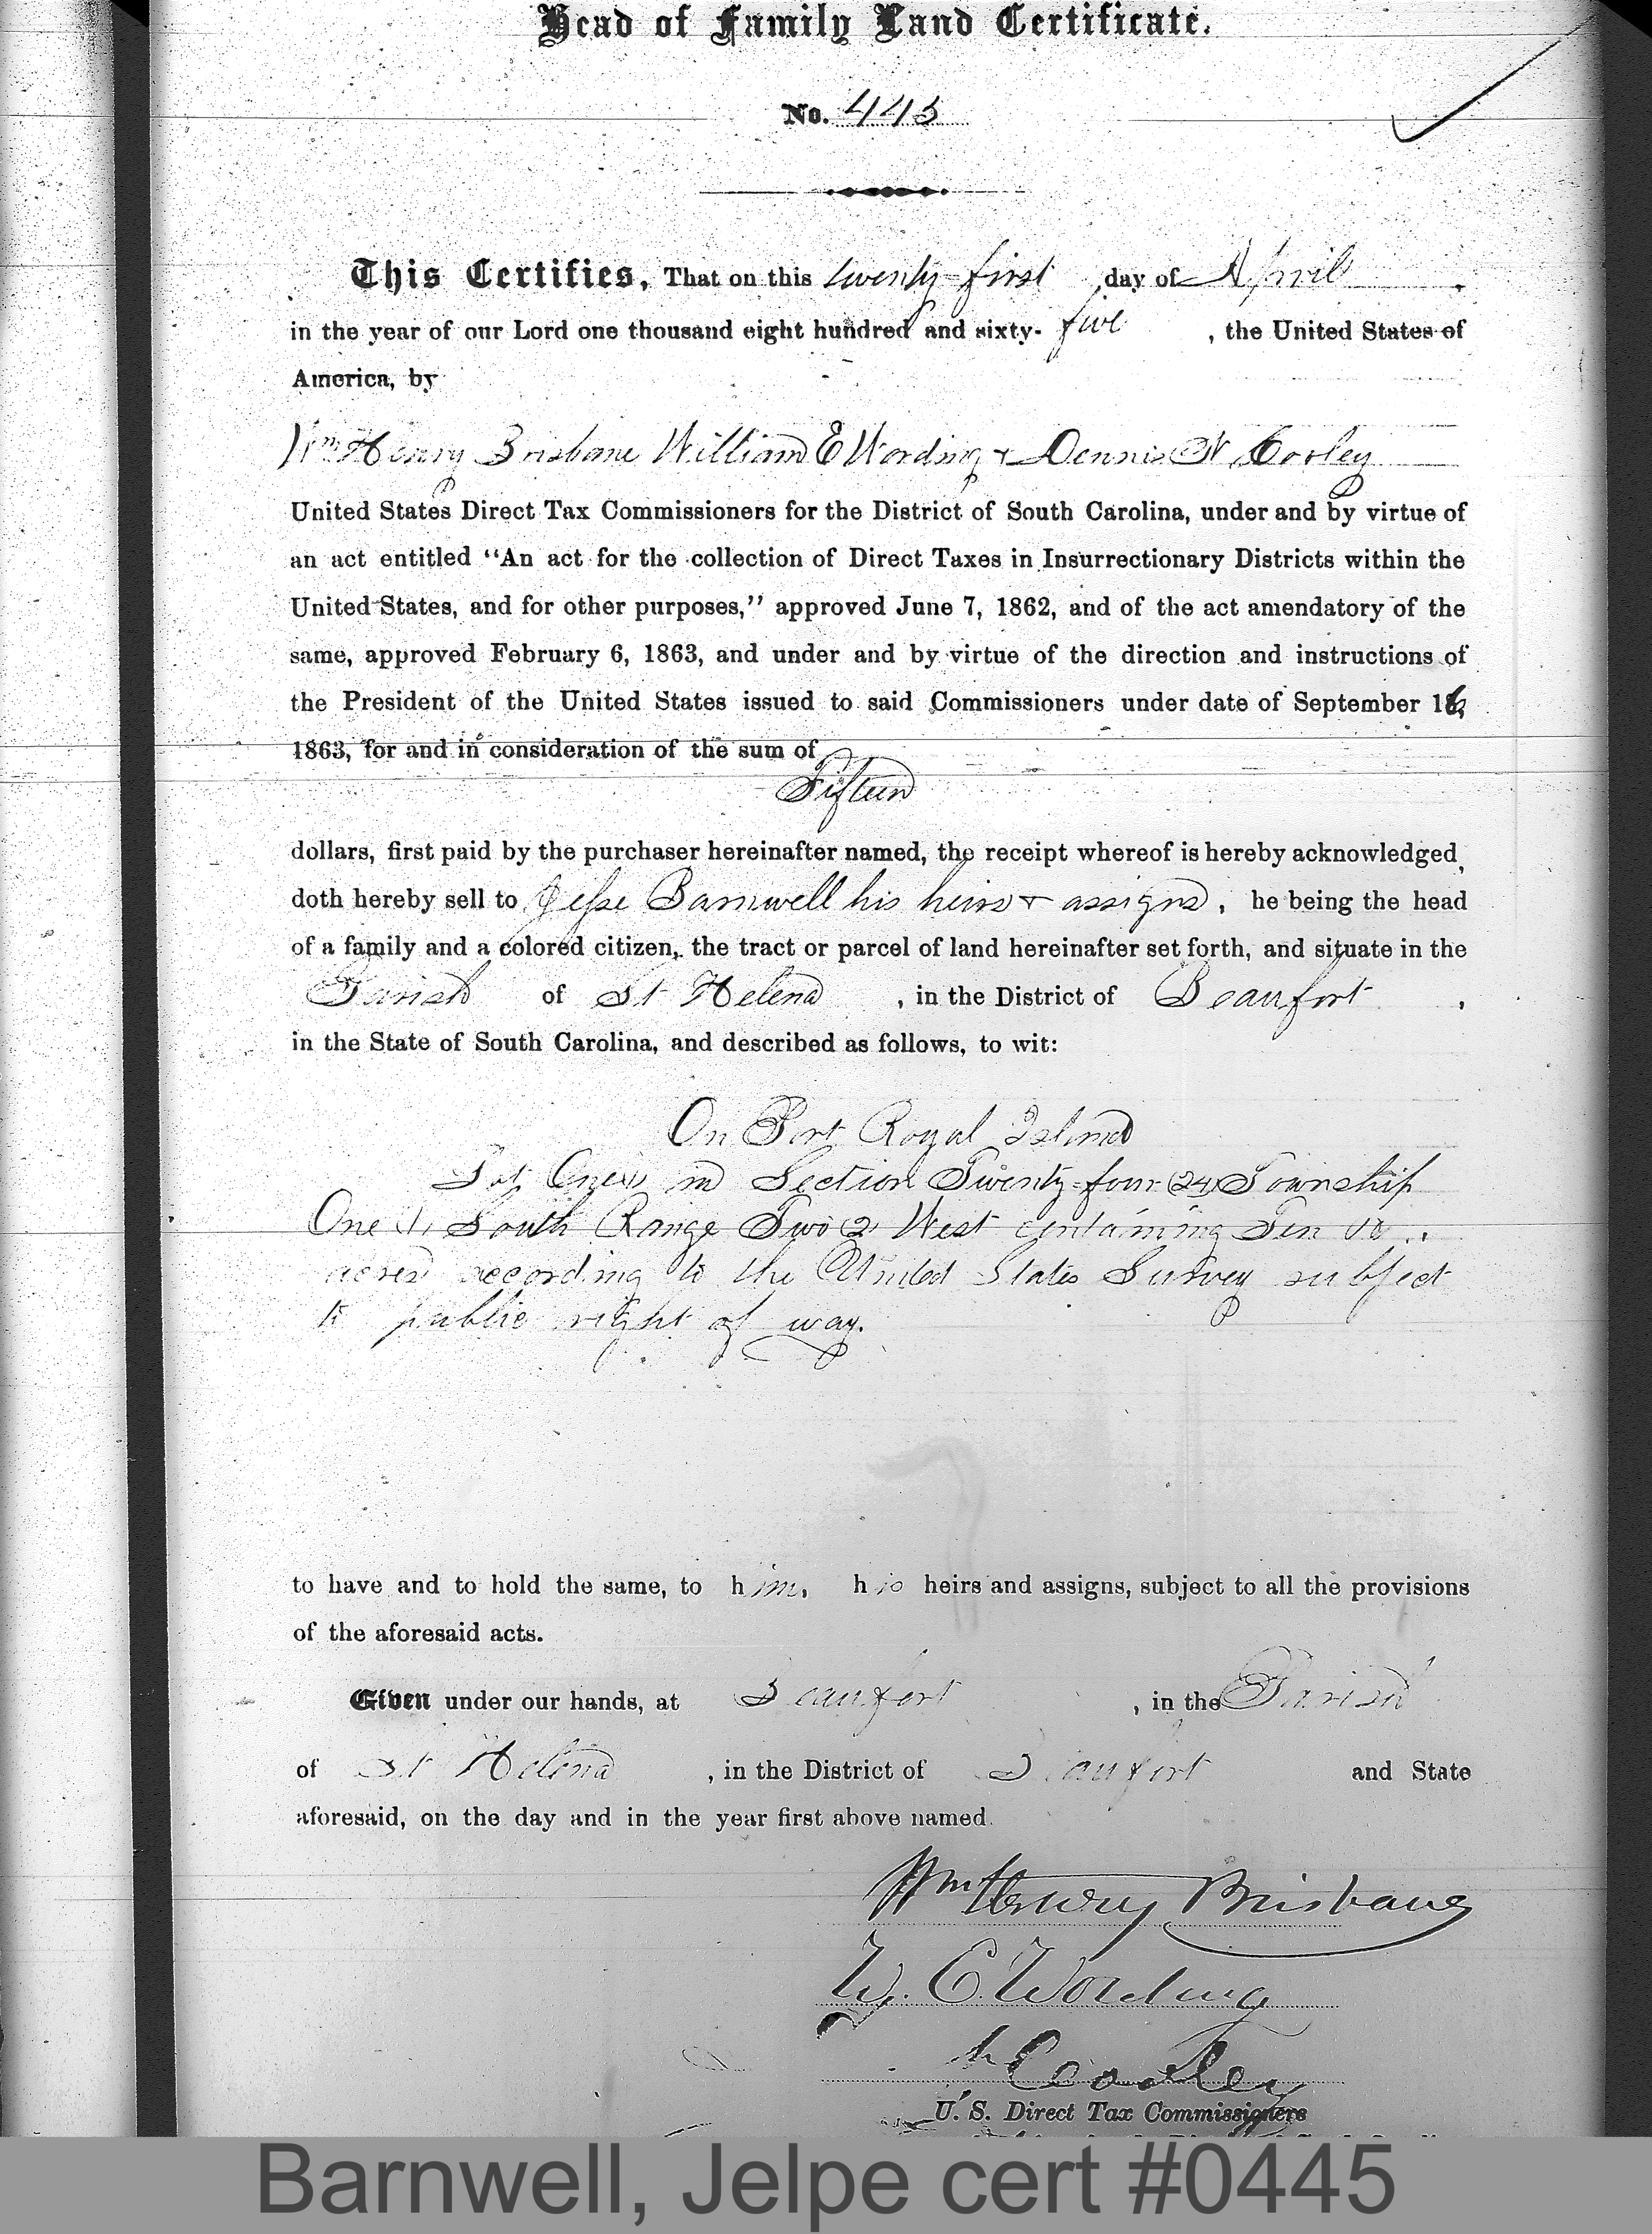 Head of Family Land Certificate.
No. 445
This Certifies, That on this twenty-first day of April
in the year of our Lord one thousand eight hundred and sixty-five, the United States of
America, by
Wm Henry Brisbane William E Wording & Dennis N Cooley
United States Direct Tax Commissioners for the District of South Carolina, under and by virtue of
an act entitled "An act for the collection of Direct Taxes in Insurrectionary Districts within the
United States, and for other purposes," approved June 7, 1862, and of the act amendatory of the
same, approved February 6, 1863, and under and by virtue of the direction and instructions of
the President of the United States issued to said Commissioners under date of September 16,
1863, for and in consideration of the sum of
Fifteen
dollars, first paid by the purchaser hereinafter named, the receipt whereof is hereby acknowledged,
doth hereby sell to Jesse Barnwell his heirs & assigns, he being the head
of a family and a colored citizen, the tract or parcel of land hereinafter set forth, and situate in the
Parish of St Helena, in the District of Beaufort,
in the State of South Carolina, and described as follows, to wit:
On Port Royal Island
Lot One (1) in Section Twenty-four (24) Township
One (1) South Range Two (2) West containing Ten (10)
acres according to the United States Survey subject
to public right of way.
to have and to hold the same, to him, his heirs and assigns, subject to all the provisions
of the aforesaid acts.
Given under our hands, at Beaufort, in the Parish
of St Helena, in the District of Beaufort and State
aforesaid, on the day and in the year first above named.
Wm Henry Brisbane
W. E. Wording
Cooley
U. S. Direct Tax Commissioners
Barnwell, Jelpe cert #0445